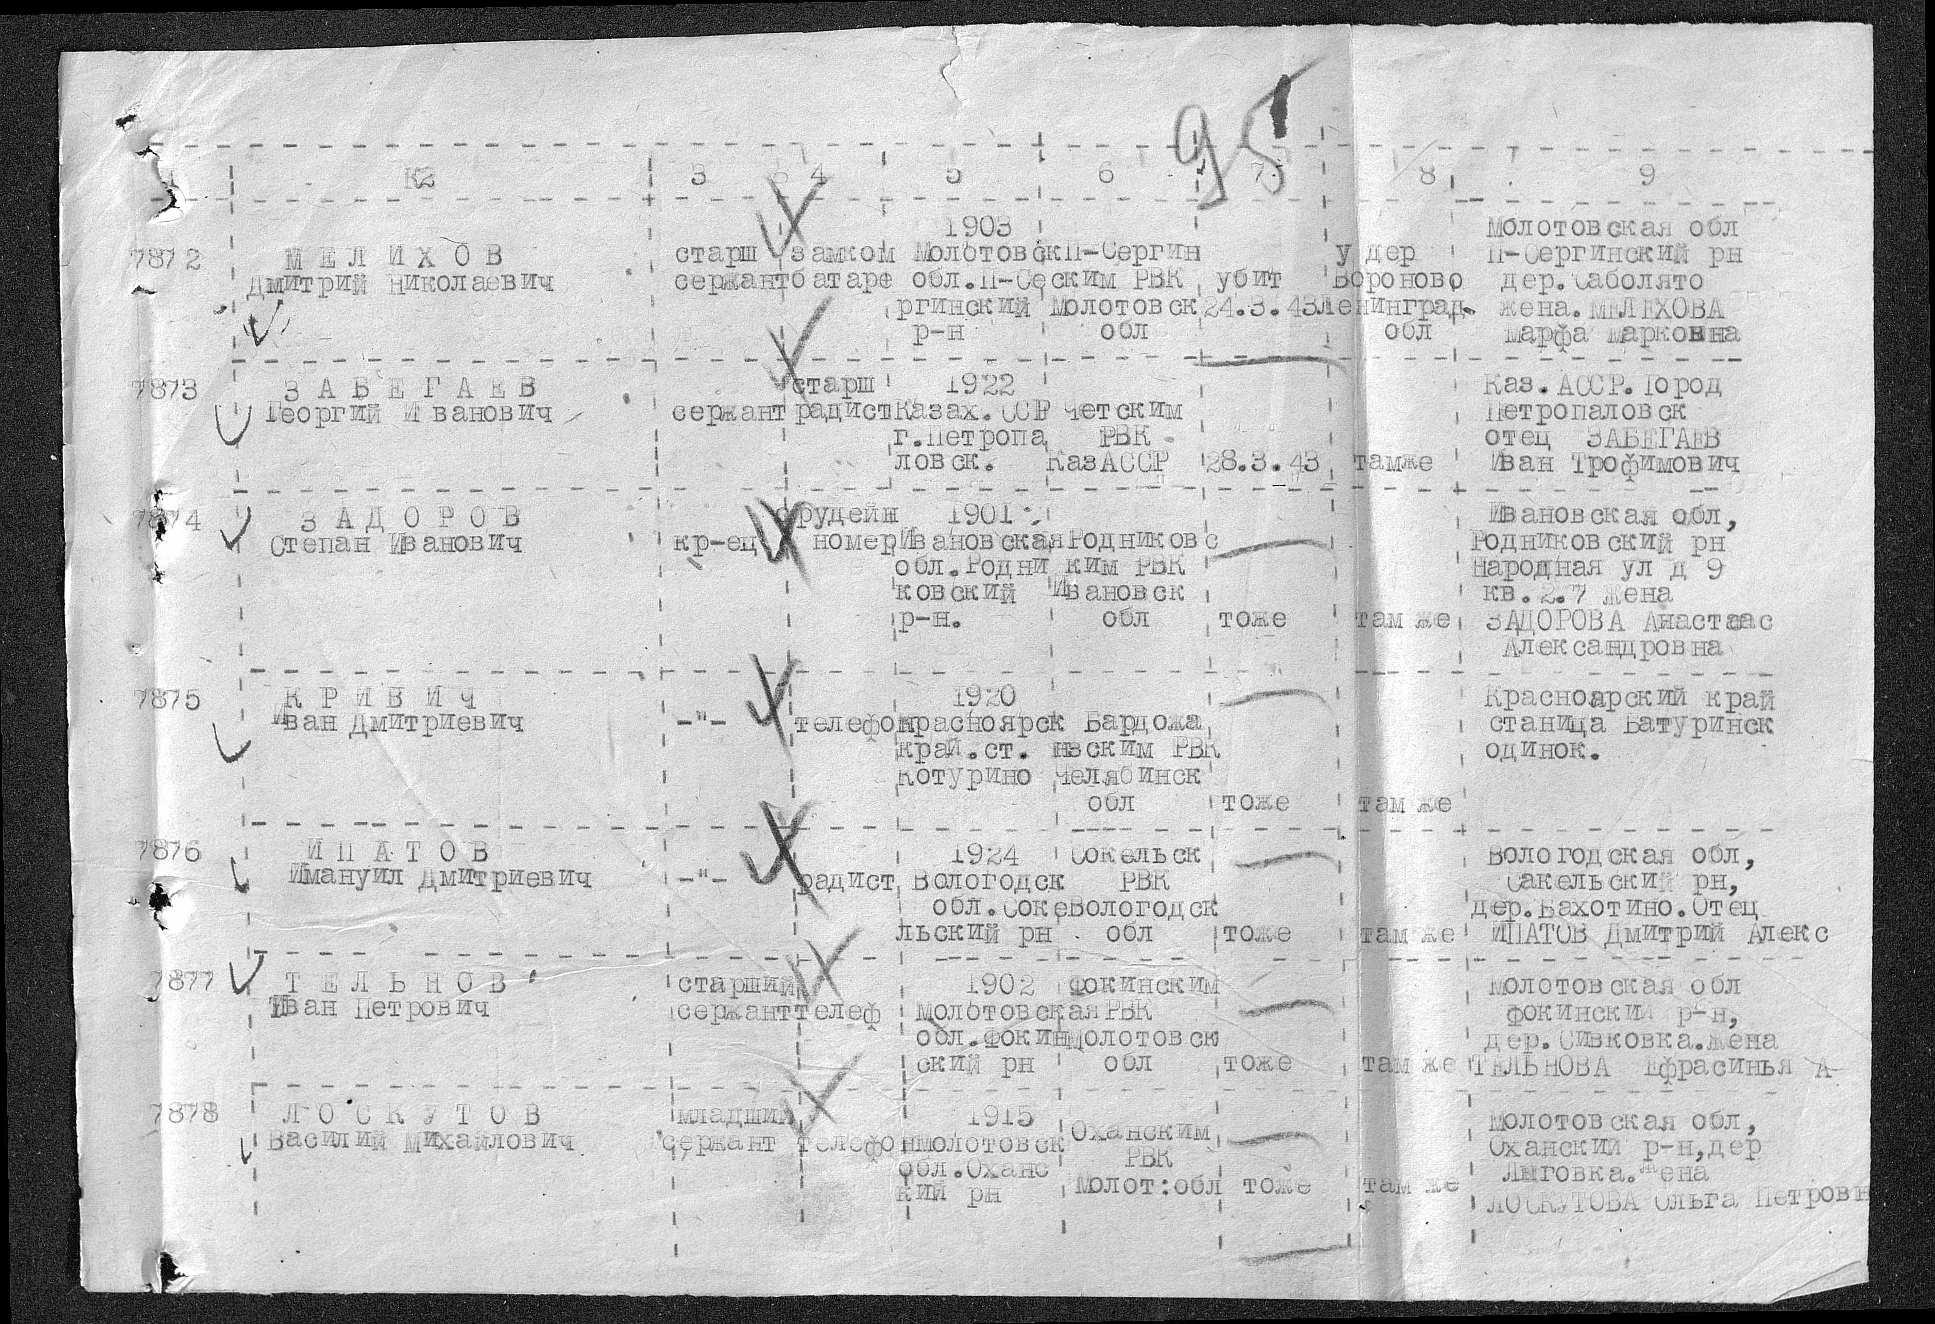 95
1 К2 3 4 5 6 7 8 9
7872 МЕЛИХОВ Дмитрий Николаевич
старш сержант
замком батаре
1903
Молотовск
обл.П-Се
ргинский
р-н
П-Сергин
ским РВК
Молотовск
обл
убит
24.3.43
у дер
Вороново
Ленинград.
обл
Молотовская обл
П-Сергинский рн
дер.Саболято
жена.МЕЛЕХОВА
Марфа Марковна
7873 ЗАБЕГАЕВ
Георгий Иванович
сержант
старш
радист
1922
Казах.ССР
г.Петропа
ловск.
Четским
РВК
КазАССР
28.3.43
тамже
Каз.АССР.Город
Петропаловск
отец ЗАБЕГАЕВ
Иван Трофимович
7874 ЗАДОРОВ
Степан Иванович
кр-ец
орудейн
номер
1901
Ивановская
обл.Родни
ковский
р-н.
Родниковс
ким РВК
Ивановск
обл
тоже
там же
Ивановская обл,
Родниковский рн
Народная ул д 9
кв.2.7 жена
ЗАДОРОВА Анастаас
Александровна
7875 КРИВИЧ
Иван Дмитриевич
-"-
телефон
1920
Красноярск
край.ст.
Котурино
Бардома
нвским РВК
Челябинск
обл
тоже
там же
Красноарский край
станица Батуринск
одинок.
7876 ИПАТОВ
Имануил Дмитриевич
-"-
радист
1924
Вологодск
обл.Соке
льский рн
Сокельск
РВК
Вологодск
обл
тоже
там же
Вологодская обл,
Сакельский рн,
дер.Вахотино.Отец
ИПАТОВ Дмитрий Алекс
7877 ТЕЛЬНОВ
Иван Петрович
старший
сержант
телеф
1902
Молотовская
обл.Фокин
ский рн
Фокинским
РВК
Молотовск
обл
тоже
там же
Молотовская обл
Фокинский р-н,
дер.Сивковка.Жена
ТЕЛЬНОВА Ефрасинья А
7878 ЛОСКУТОВ
Василий Михайлович
младший
сержант
телефон
1915
Молотовск
обл.Оханс
кий рн
Оханским
РВК
Молот:обл
тоже
там же
Молотовская обл,
Оханский р-н,дер
Лыговка.Жена
ЛОСКУТОВА Ольга Петровн